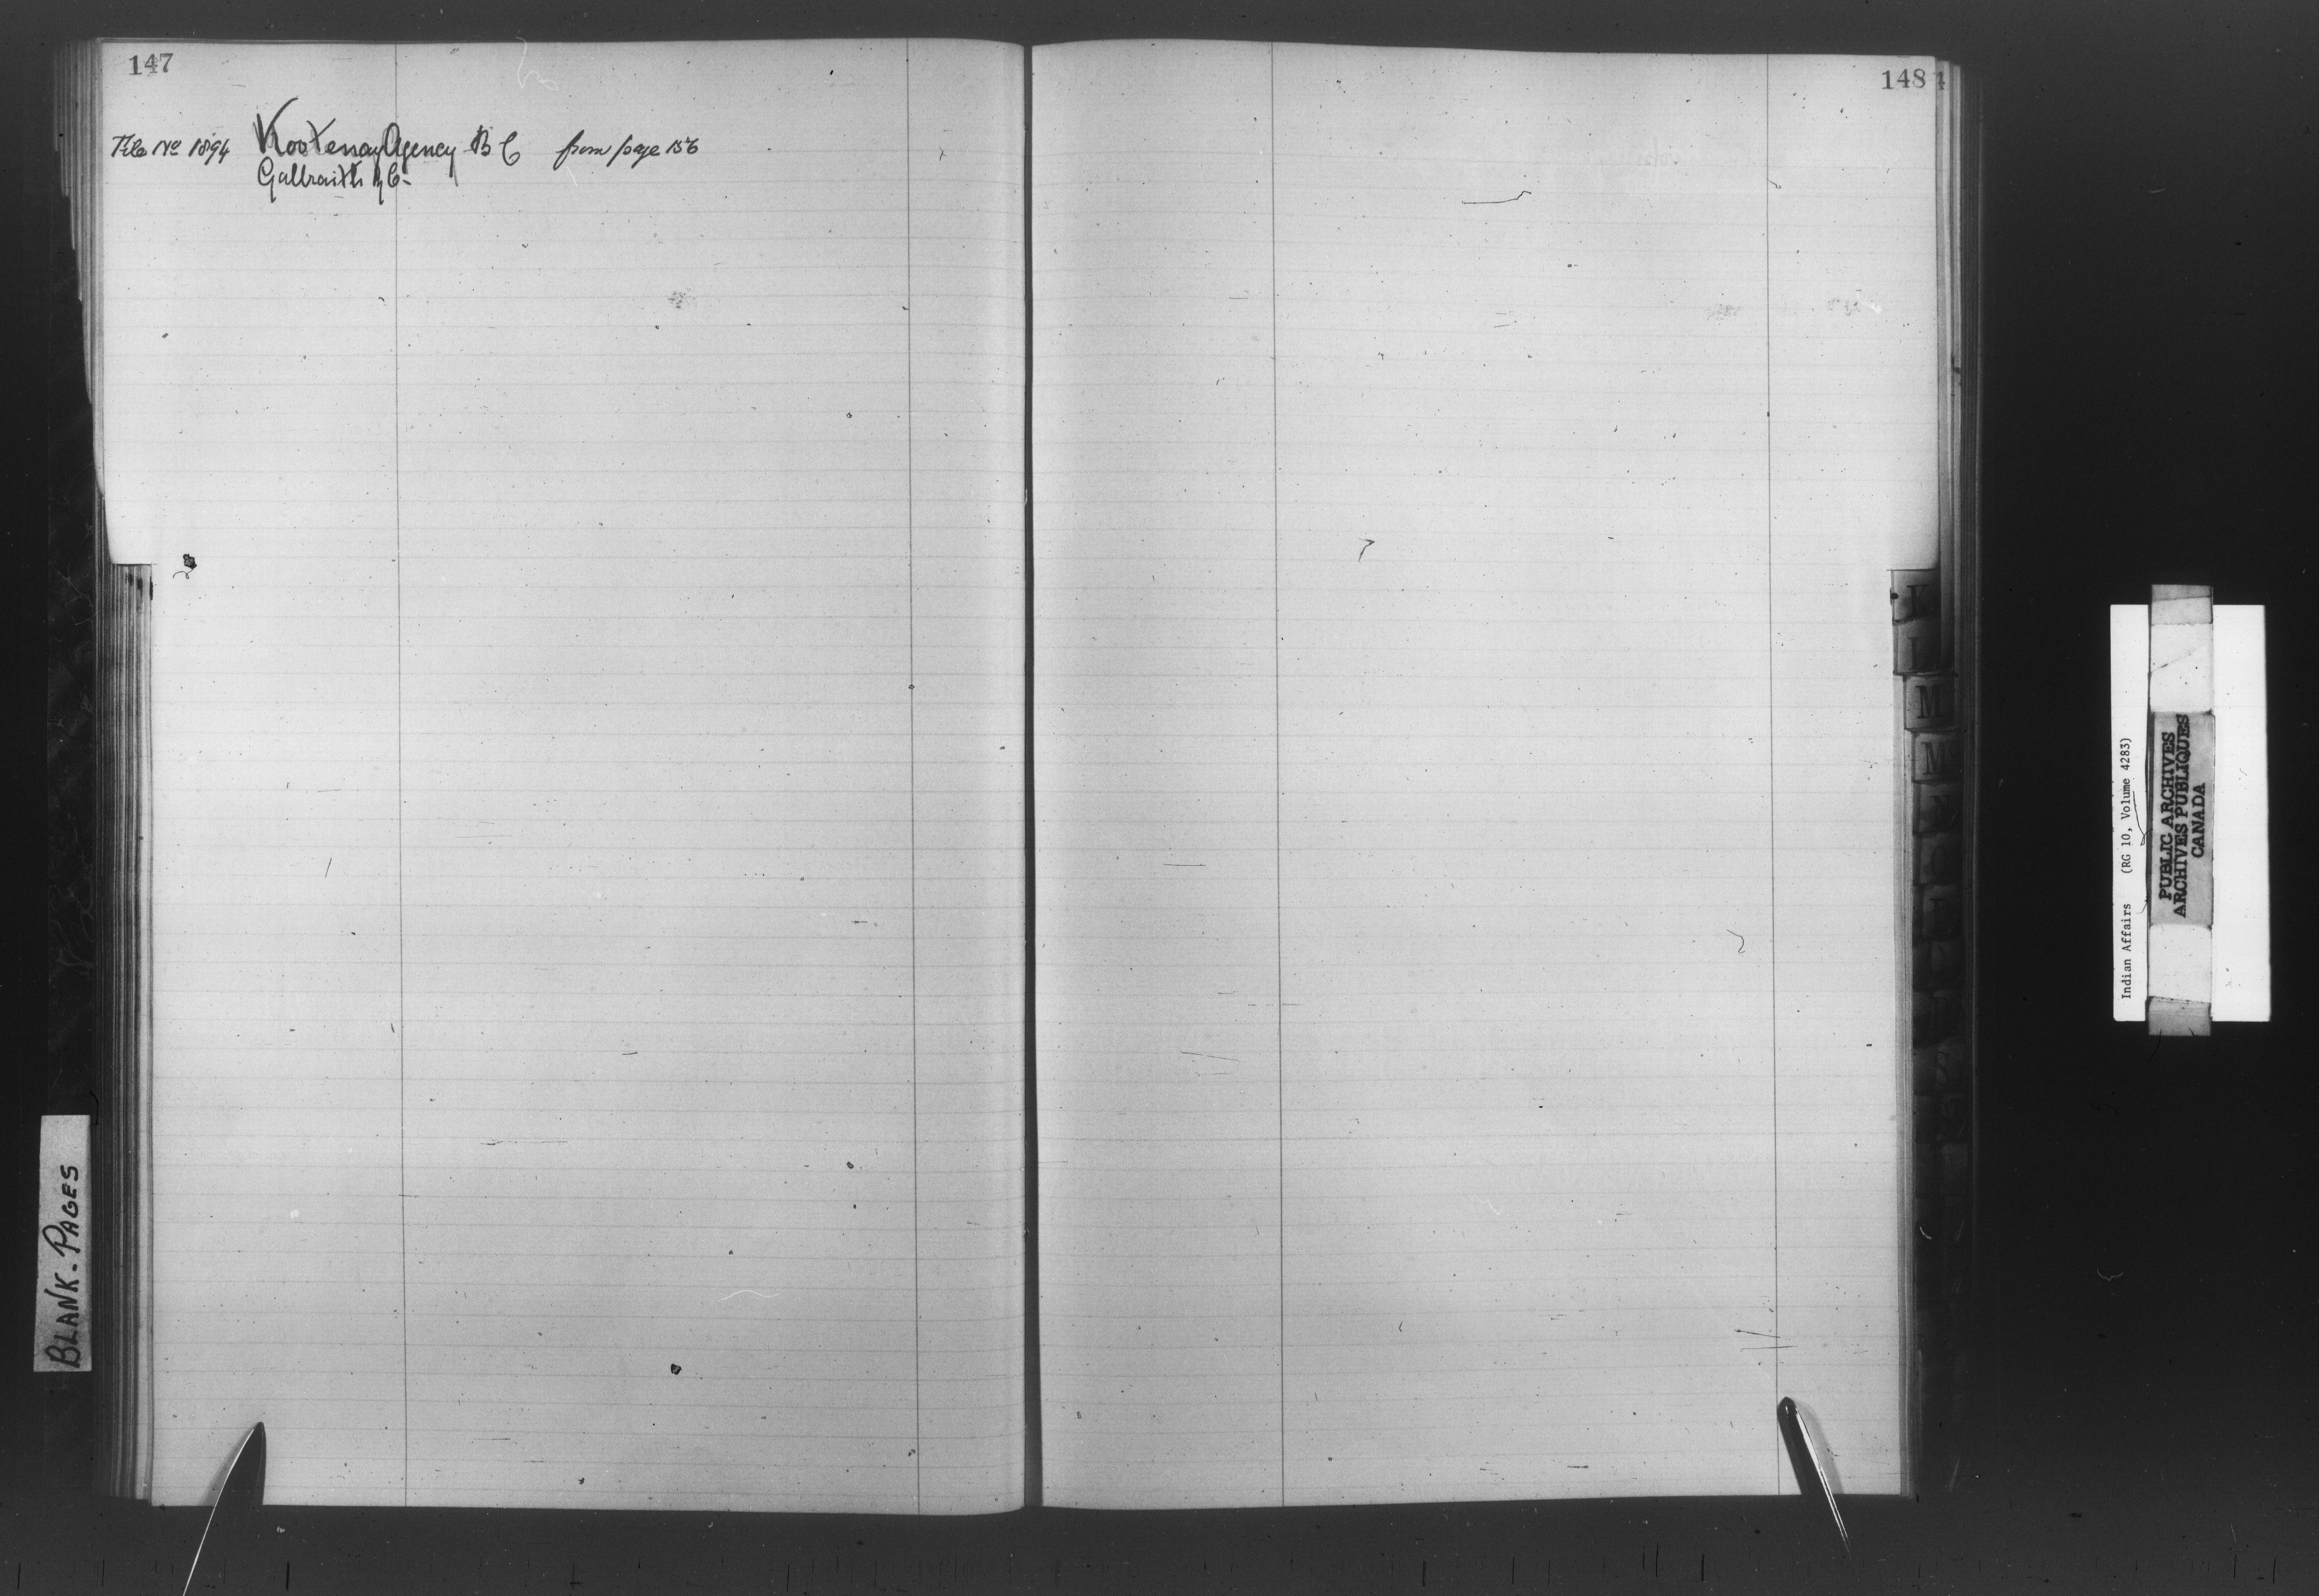 147
File No 1894 Kootenay Agency B C from page 156
Galbraith
148
K
L
M
M
BLANK-PAGES
Indian Affairs (RG 10, Volume 4283)
PUBLIC ARCHIVES
ARCHIVES PUBLIQUES
CANADA